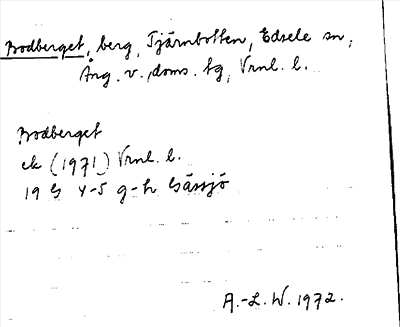 Bodberget, berg, Tjärnbotten, Edsele sn,
Ång. v. doms. tg, Vrnl. l.
Bodberget
ek (1971) Vrnl. l.
19 G 4-5 g-h Gåssjö
A.-L. W. 1972.